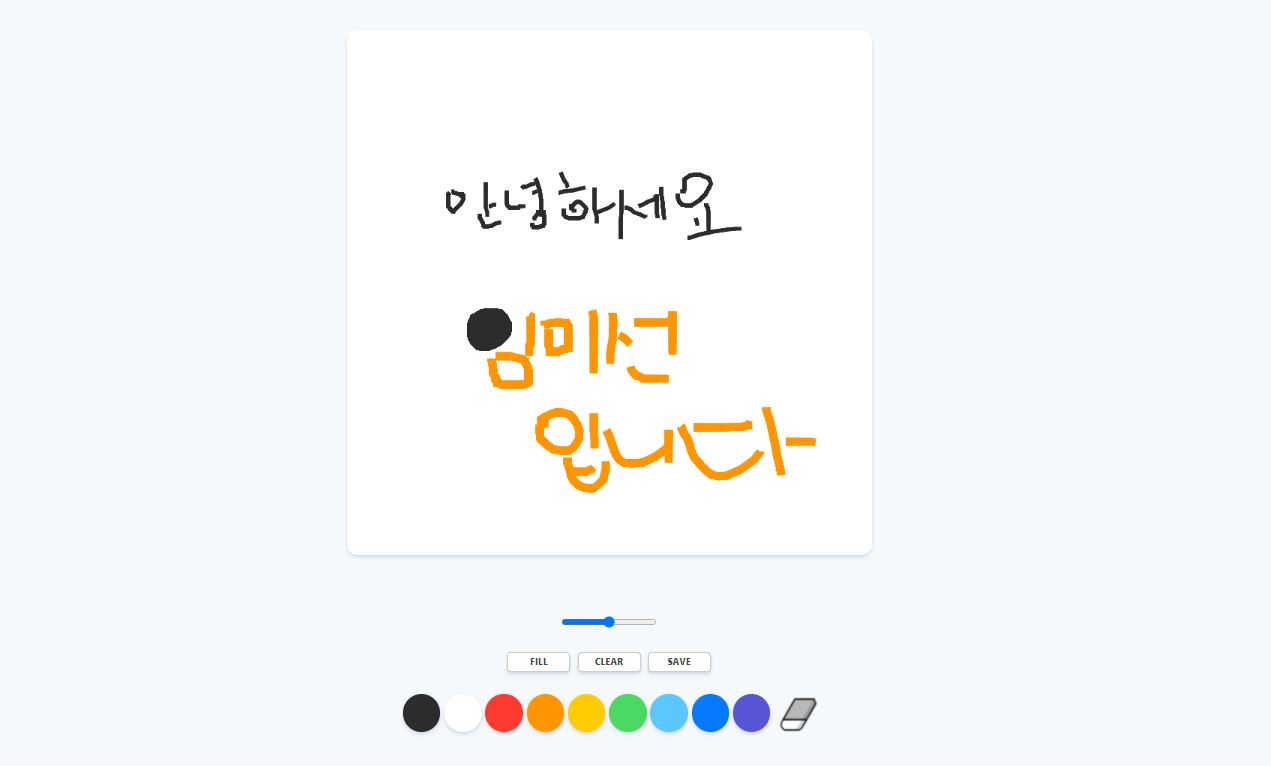 안녕하세요
임미선
입니다
FILL CLEAR SAVE